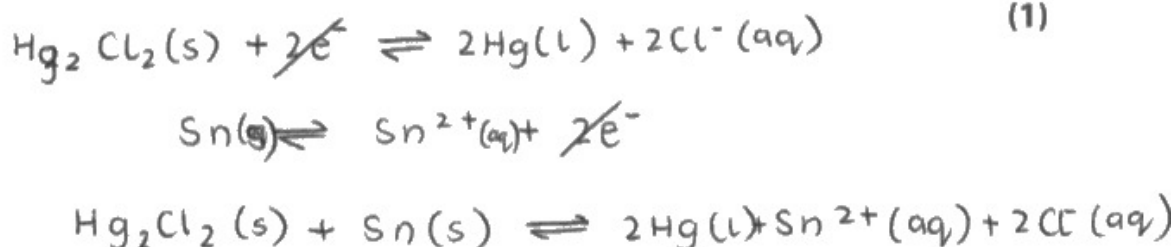 (1)
Hg₂Cl₂(s) + 2e⁻ ⇌ 2Hg(l) + 2Cl⁻(aq)
Sn(s) ⇌ Sn²⁺(aq) + 2e⁻
Hg₂Cl₂(s) + Sn(s) ⇌ 2Hg(l) + Sn²⁺(aq) + 2Cl⁻(aq)